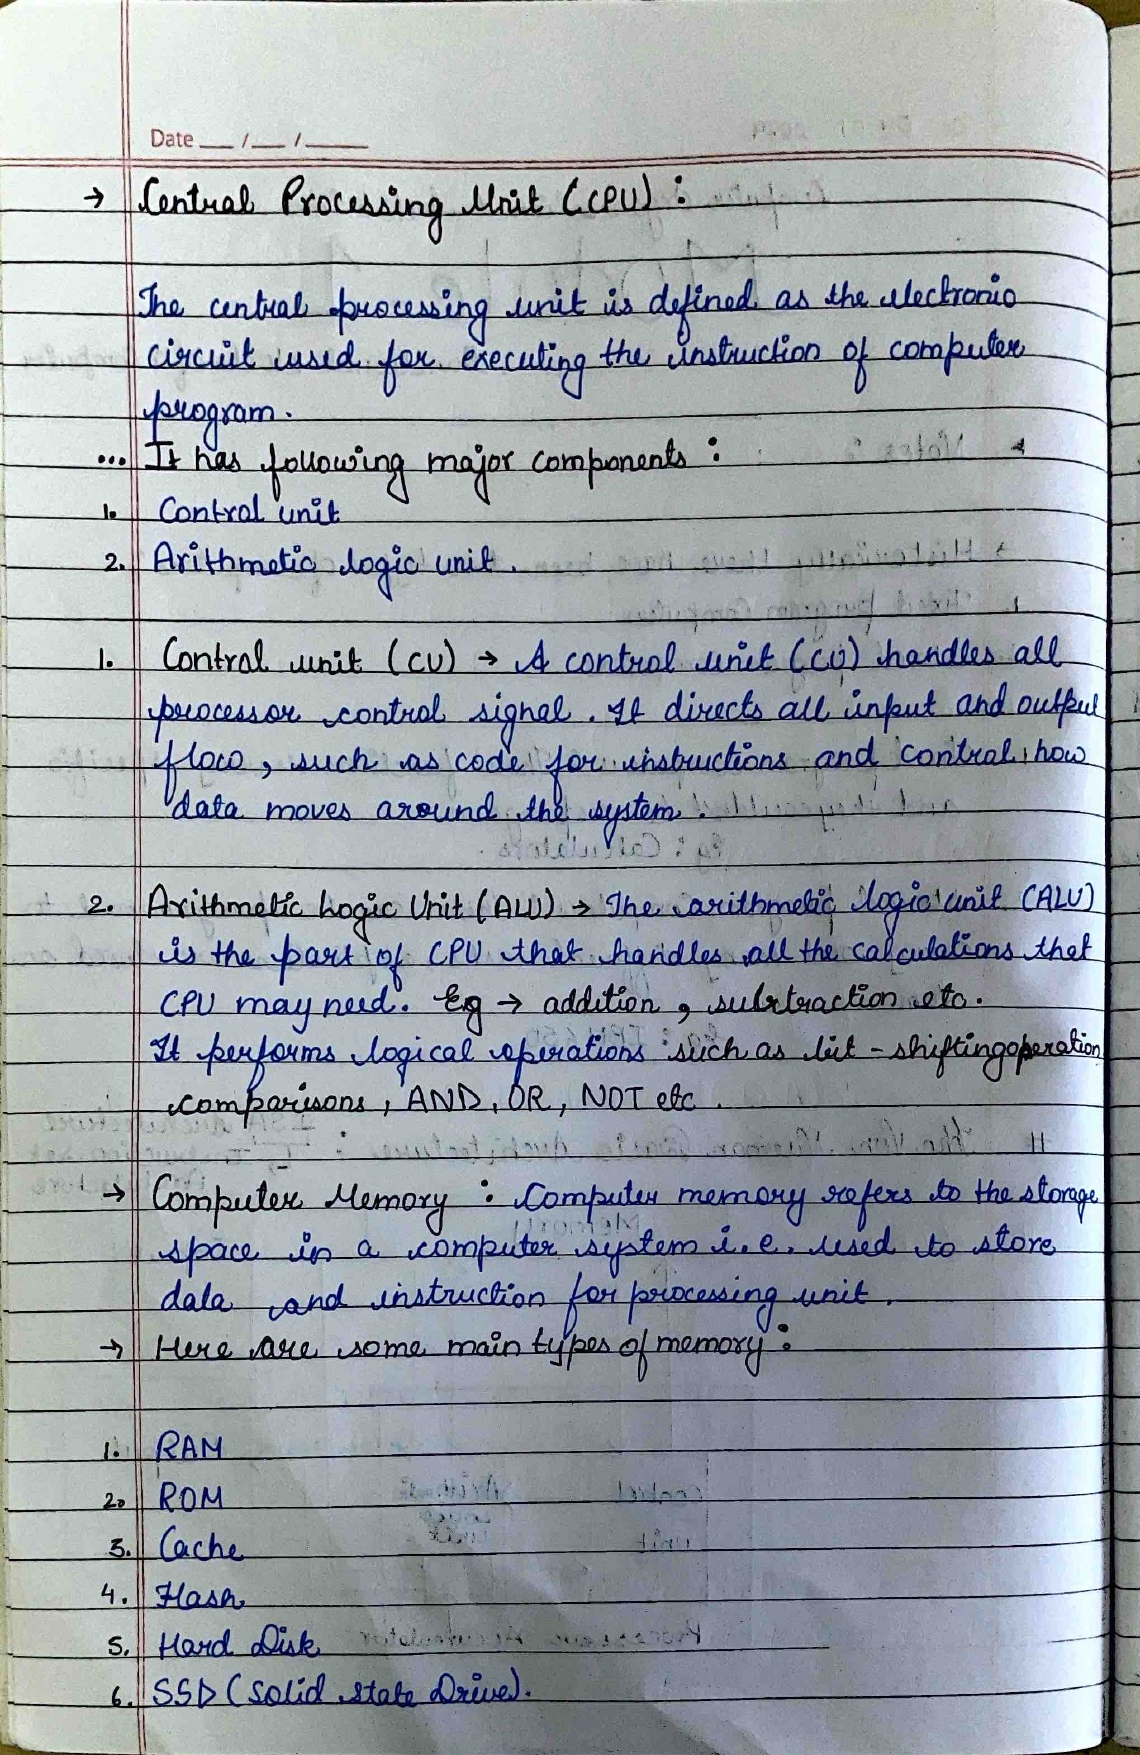 Date __ /__ /____
→ Central Processing Unit (CPU) :
The central processing unit is defined as the electronic
circuit used for executing the instruction of computer
program.
... It has following major components :
1. Control unit
2. Arithmetic logic unit.
1. Control unit (CU) → A control unit (CU) handles all
processor control signal. It directs all input and output
flow, such as code for instructions and control how
data moves around the system.
2. Arithmetic Logic Unit (ALU) → The arithmetic logic unit (ALU)
is the part of CPU that handles all the calculations that
CPU may need. Eg → addition, subtraction etc.
It performs logical operations such as bit-shifting operation
comparisons, AND, OR, NOT etc.
→ Computer Memory : Computer memory refers to the storage
space in a computer system i.e. used to store
data and instruction for processing unit.
→ Here are some main types of memory :
1. RAM
2. ROM
3. Cache
4. Flash
5. Hard Disk
6. SSD (Solid State Drive).